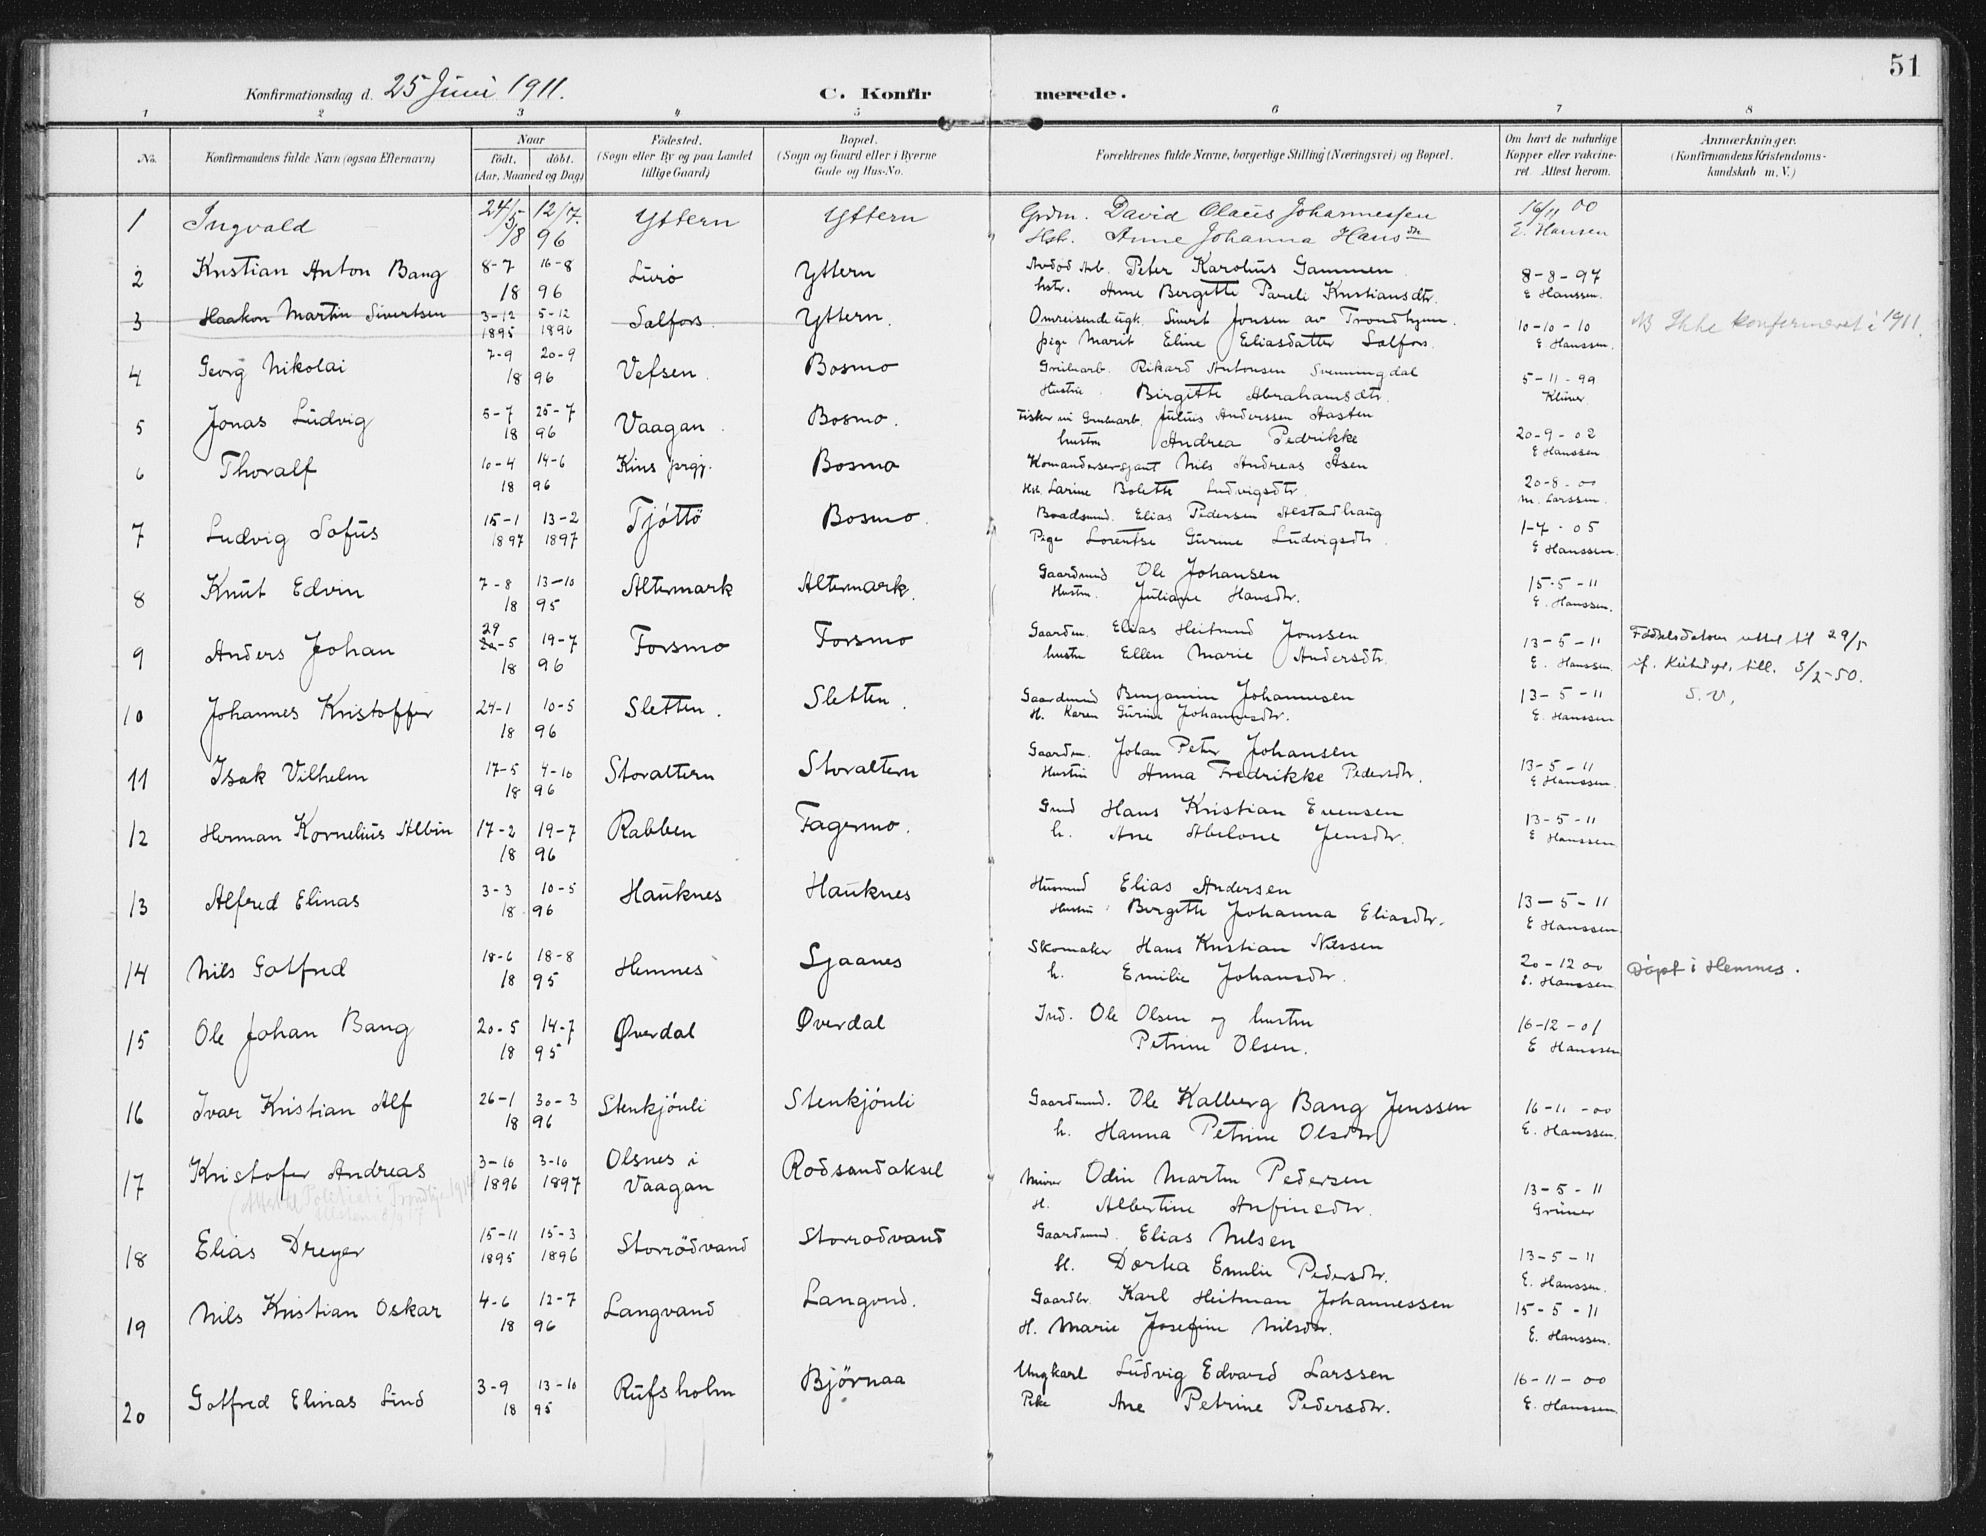 51
Konfirmationsdag d. 25 Juni 1911.
C. Konfirmerede.
1 2 3 4 5 6 7 8
No.
Konfirmandens fulde Navn (ogsaa Efternavn)
Naar
födt. döbt.
(Aar, Maaned og Dag)
Födested.
(Sogn eller By og paa Landet
tillige Gaard)
Bopæl.
(Sogn og Gaard eller i Byerne
Gade og Hus-No.
Forældrenes fulde Navne, borgerlige Stilling (Næringsvei) og Bopæl.
Om havt de naturlige
Kopper eller vakcine-
ret Attest herom.
Anmærkninger.
(Konfirmandens Kristendoms-
kundskab m. V.)
1 Ingvald 24/5 12/7 Yttern Yttern Grdm. David Olaus Johannessen 16/11 00
18 96 Hst. Anne Johanna Hansdtr E. Hansen
2 Kristian Anton Bang 8-7 16-8 Lurö Yttern Peter Karolius Gammen 8-8-97
18 96 hstr. Anne Bergitte Pareli Kristiansdtr. E Hanssen.
3 Haakon Martin Sivertsen 3-12 5-12 Salfors. Yttern. Omreisende ugk. Sivert Jonsen av Trondhjem. 10-10-10 NB Ikke konfirmeret i 1911.
1895 1896 pige Marit Eline Eliasdatter Salfors. E Hanssen.
4 Georg Nikolai 7-9 20-9 Vefsen. Bosmo Grubarb. Rikard Antonsen Svenningdal 5-11-99
18 96 Hustru Birgitte Abrahamsdtr. Klüver
5 Jonas Ludvig 5-7 25-7 Vaagan. Bosmo. Julius Anderssen Aasten 20-9-02
18 96 hustru Andrea Pedrikke E Hanssen
6 Thoralf 10-4 14-6 Kins prgj. Bosmo Komandersergjant Nils Andreas Åsen 20-8-00
18 96 Hst. Larine Bolette Ludvigsdtr. M. Larssen.
7 Ludvig Sofus 15-1 13-2 Tjöttö Bosmo. Baadsmd. Elias Pedersen Alstadhaug 1-7-05
1897 1897 Pige Lorentse Gurine Ludvigsdtr. E Hanssen.
8 Knut Edvin 7-8 13-10 Altermark Altermark. Gaardmd Ole Johansen 15-5-11
18 95 Hustru. Juliane Hansdtr. E. Hanssen.
9 Anders Johan 29 -5 19-7 Forsmo Forsmo Gaardm. Elias Heitmand Jonssen 13-5-11 Fødselsdatoen rettet til 29/5
18 96 hustru Ellen Marie Andersdtr. E. Hanssen. till. 3/2-50.
S.V.
10 Johannes Kristoffer 24-1 10-5 Sletten. Sletten. Gaardmd Benjamin Johannesen 13-5-11
18 96 H. Karen Gurine Johannesdtr. E. Hanssen
11 Isak Vilhelm 17-5 4-10 Storaltern Storaltern Gaardm. Johan Peter Johansen 13-5-11
18 96 Hustru Anna Fredrikke Pedersdtr. E Hanssen.
12 Herman Kornelius Albin 17-2 19-7 Rabben Fagermo. Gmd Hans Kristian Evensen 13-5-11
18 96 h. Ane Abelone Jensdtr. E Hanssen
13 Alfred Elinas 3-3 10-5 Hauknes Hauknes Husmd Elias Andersen 13-5-11
18 96 Hustru Bergitte Johanna Eliasdtr. E Hanssen.
14 Nils Gotfred 18-6 18-8 Hemnes Sjaanes Skomaker Hans Kristian Nilssen 20-12 00 Döpt i Hemnes.
18 95 h. Emilie Johansdtr. E. Hanssen
15 Ole Johan Bang 20-5 14-7 Øverdal Øverdal Ind. Ole Olsen og hustru 16-12-01
18 95 Petrine Olsen. E Hanssen
16 Ivar Kristian Alf 26-1 30-3 Stenkjönli Stenkjönli Gaardmd. Ole Kalberg Bang Jenssen 16-11-00
18 96 h. Hanna Petrine Olsdtr E. Hanssen.
17 Kristofer Andreas 3-10 3-10 Olsnes i Rödsandaksel Odin Martin Pedersen 13-5-11
(Attest til Politiet i Trondhj. 1914 1896 1897 Vaagan H. Albertine Anfinsdtr. Grüner
18 Elias Dreyer 15-11 15-3 Storrödvand Storrodvand Gaardmd. Elias Nilsen 13-5-11
1895 1896 H. Dortea Emilie Pedersdtr. E. Hanssen.
19 Nils Kristian Oskar 4-6 12-7 Langvand Langvnd. Gaardbr. Karl Heitman Johannessen 15-5-11
18 96 H. Marie Josefine Nilsdtr. E. Hanssen.
20 Gotfred Elinas Lind 3-9 13-10 Rufsholm Bjørnaa Ungkarl Ludvig Edvard Larssen 16-11-00
18 95 Pike Ane Petrine Pedersdtr. E. Hanssen.